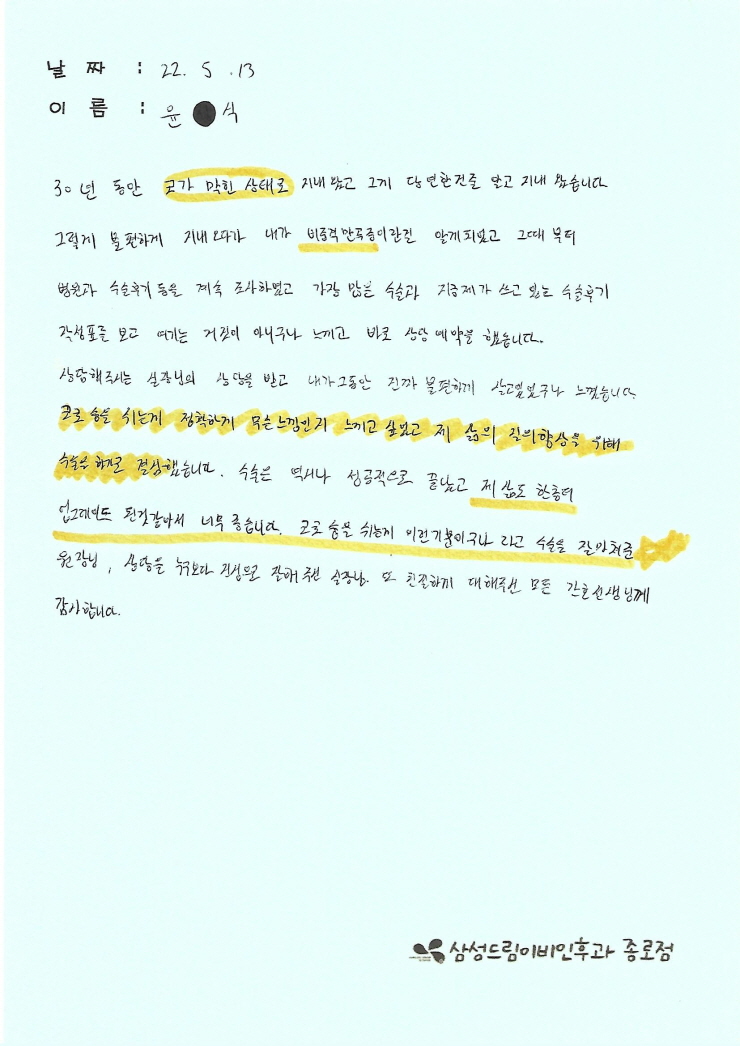 날 짜 : 22. 5. 13
이 름 : 윤 ● 식
30년 동안 코가 막힌 상태로 지내왔고 그게 당연한건줄 알고 지내 왔습니다
그렇게 불편하게 지내오다가 내가 비중격만곡증이란걸 알게되었고 그때부터
병원과 수술후기 등을 계속 조사하였고 가장 많은 수술과 지금 제가 쓰고 있는 수술후기
작성표를 보고 여기는 거짓이 아니구나 느끼고 바로 상담 예약을 했습니다.
상담해주시는 실장님의 상담을 받고 내가 그동안 진짜 불편하게 살고있었구나 느꼈습니다.
코로 숨을 쉬는게 정확하게 무슨느낌인지 느끼고 싶었고 제 삶의 질의향상을 위해
수술을 하기로 결심했습니다. 수술은 역시나 성공적으로 끝났고 제 삶도 한층더
업그레이드 된것같아서 너무 좋습니다. 코로 숨을 쉬는게 이런기분이구나 라고 수술을 잘 마쳐준
원장님, 상담을 누구보다 진심으로 잘해주신 실장님. 또 친절하게 대해주신 모든 간호선생님께
감사합니다.
삼성드림이비인후과 종로점